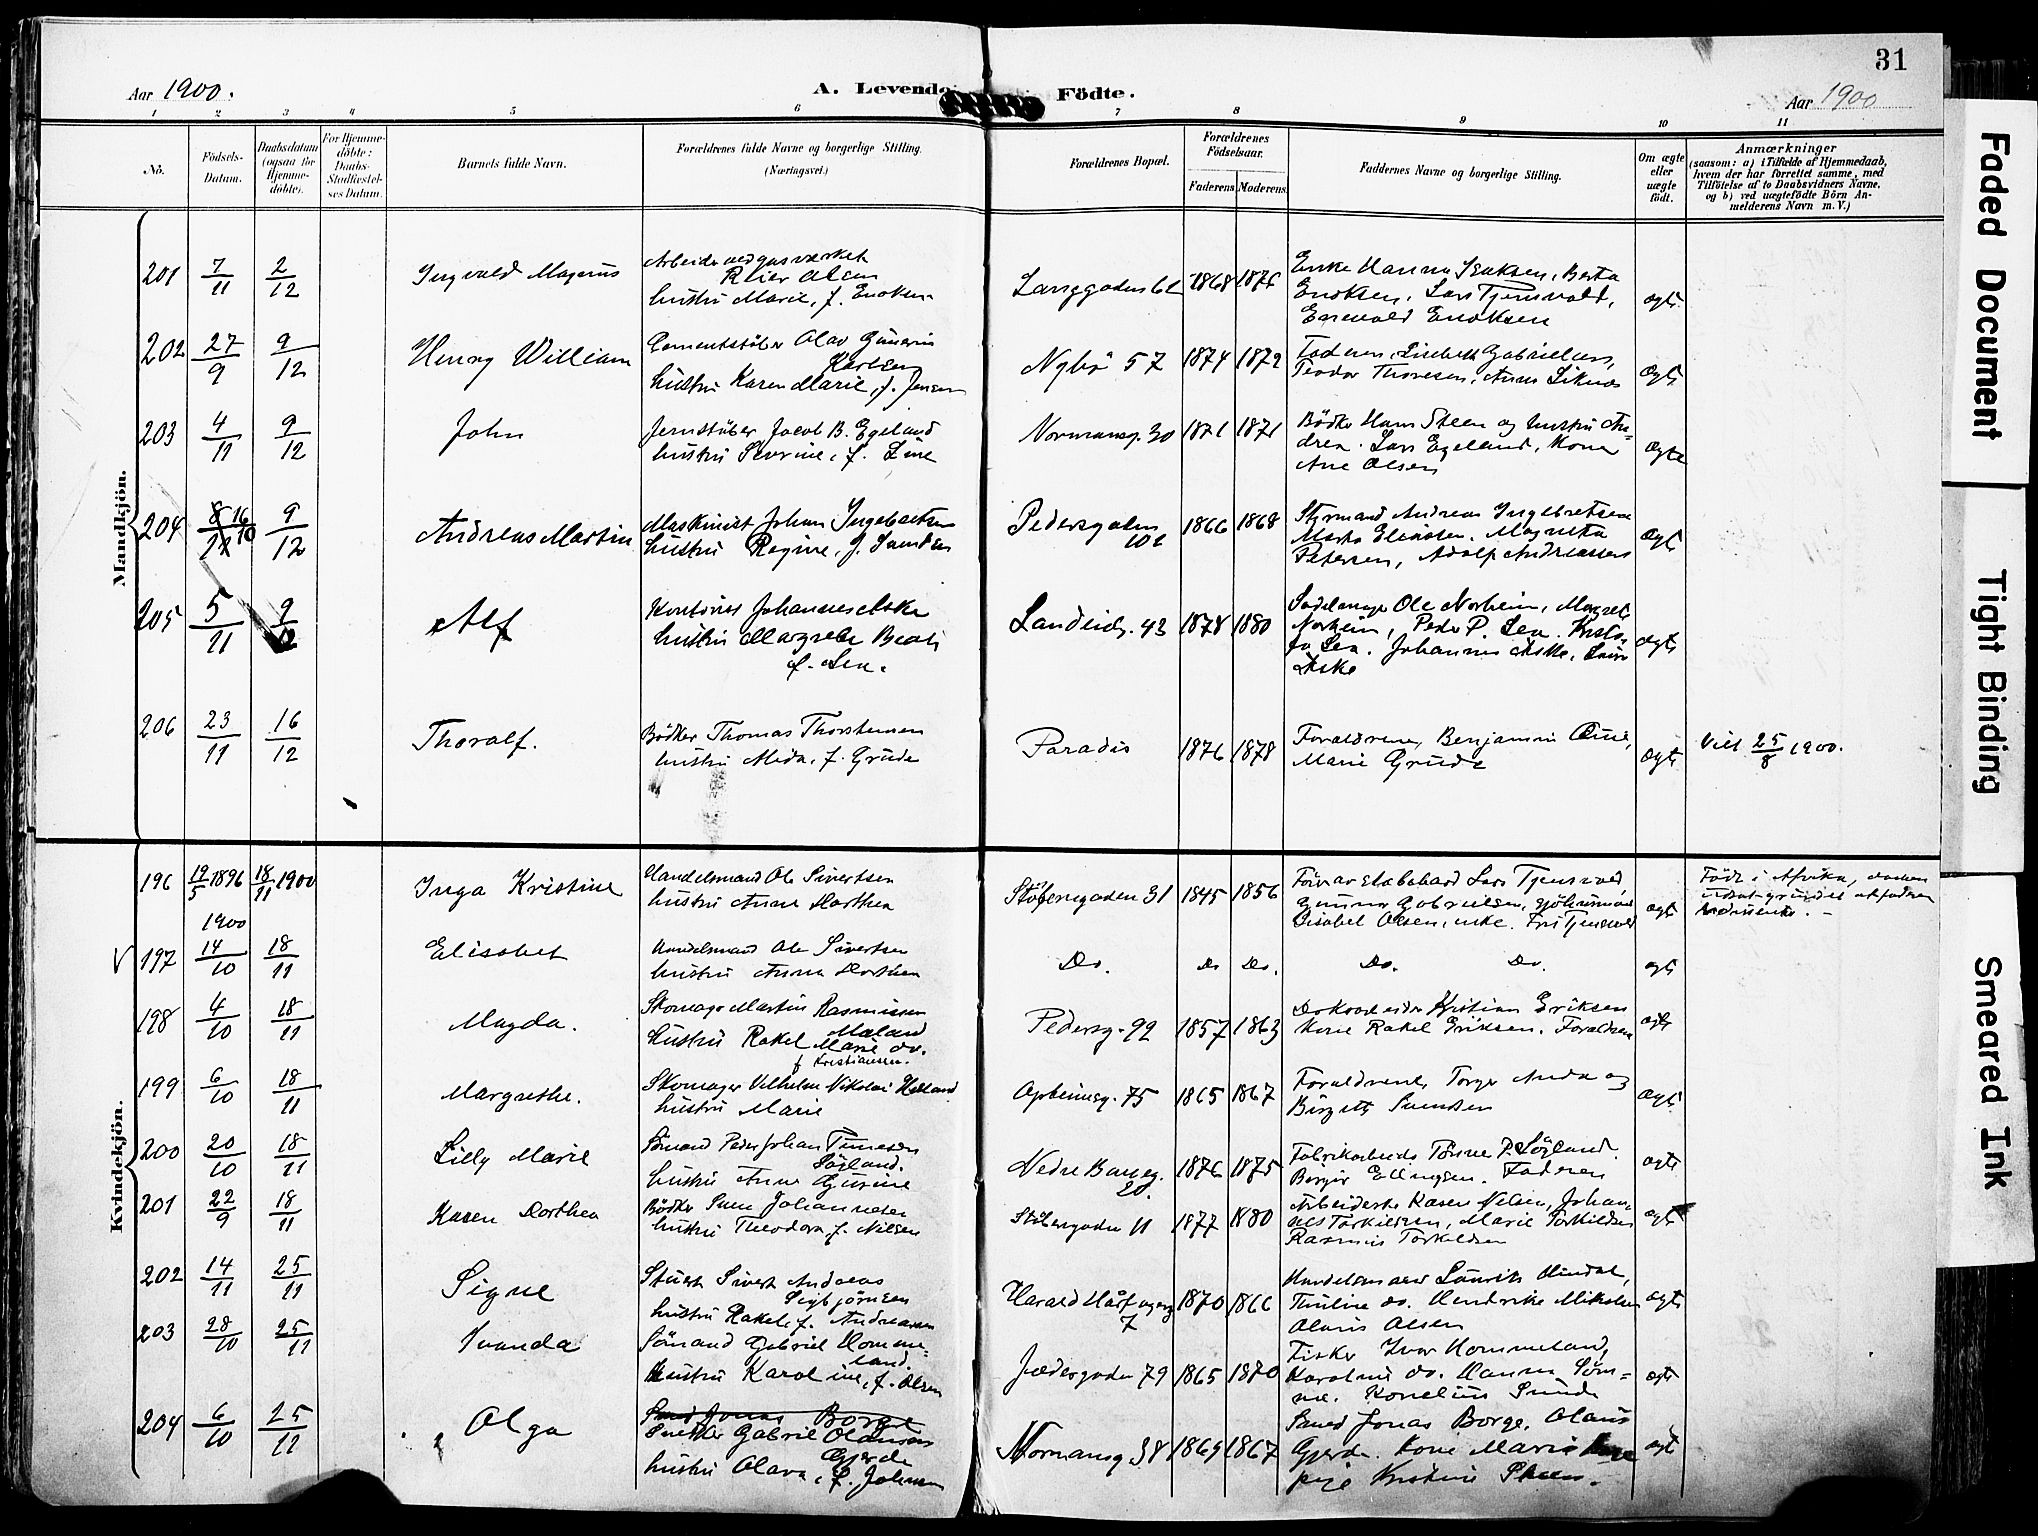 31
Aar 1900.
A. Levende Födte.
Aar 1900
1 2 3 4 5 6 7 8 9 10 11
No.
Födsels-Datum.
Daabsdatum (ogsaa for Hjemmedöbte).
For Hjemmedöbte: Daabs-Stadfæstelses Datum.
Barnets fulde Navn.
Forældrenes fulde Navne og borgerlige Stilling.
(Næringsvei.)
Forældrenes Bopæl.
Forældrenes Födselsaar.
Faderens Moderens
Faddernes Navne og borgerlige Stilling.
Om ægte eller uægte födt.
Anmærkninger
(saasom: a) i Tilfælde af Hjemmedaab,
hvem der har forrettet samme, med
Tilföielse af to Daabsvidners Navne,
og b) ved uægtefödte Börn An-
melderens Navn m. V.)
Mandkjön.
201 7/11 2/12 Ingvald Magnus
Arbeider ved gasværket
Reier Olsen
hustru Marie, f. Enoksen
Langgaden 62 1868 1876
Enke Hanna Isaksen, Berta
Enoksen, Lars Tjensvold,
Enevald Enoksen
ægte
202 27/9 9/12 Henry William
Cementstöber Olav Gunerius
Karlsen
hustru Karen Marie, f. Jensen
Nybö 57 1874 1872
Faderen, Lisebeth Gabrielsen,
Teodor Thoresen, Anna Liknes
Ægte
203 4/11 9/12 John
Jernstöber Jacob B. Egeland
hustru Severine, f. Line
Normansg. 30 1871 1871
Bödker Hans Steen og hustru An-
drea. Lars Egeland, Kone
Ane Olsen
Ægte
204 8/11 16/10 9/12 Andreas Martin
Maskinist Johan Ingebretsen
hustru Regine, f. Samdsen
Pedersgaden
102 1866 1868
Styrmand Andreas Ingebretsen
Marta Eliassen, Magreta
Petersen, Adolf Andreassen
Ægte
205 5/11 9/12 Alf
Kontorist Johannes Aske
hustru Margrete Beate
f. Lea.
Sandeidg. 43 1878 1880
Sadelmager Ole Norheim, Magrete
Norheim, Peder P. Lea. Kristo-
fa Lea. Johannes Aske, Laura
Aske
ægte
206 23/11 16/12 Thoralf.
Bödker Thomas Thorstensen
hustru Meda, f. Grude
Paradis 1876 1878
Forældrene, Benjamin Aune,
Marie Grude
Ægte
Viet 25/8 1900.
Kvindekjön.
196 19/5 1896 18/11 1900 Inga Kristine
Handelsmand Ole Sivertsen
hustru Anna Dorthea
Stöberegaden 31 1845 1856
Lars Tjensvold,
Gunnar Gabrielsen,
Lisabel Olsen, enke.
ægte
Födt i Afrika, daaben
udsat grundet at faderen

1900
V 197 14/10 18/11 Elisabet
Handelsmand Ole Sivertsen
hustru Anna Dorthea
Do. Do Do. Do. Do. ægte
198 4/10 18/11 Magda.
Skomager Martin Rasmussen
Maland
hustru Rakel Marie do.
f Kristiansen.
Pedersg. 92 1857 1863
Kristian Eriksen
Kone Rakel Eriksen. Forældrene
ægte
199 6/10 18/11 Margrethe.
Skomager Vilhelm Nikolai Helland
hustru Marie
Opheimsg. 75 1865 1867
Forældrene, Torger Anda og
Birgitte Svendsen
ægte
200 20/10 18/11 Lilly Marie
Sömand Peder Johan Tönnesen
Sögland.
hustru Anna Gurine
Nedre Baneg.
20. 1876 1875
Fabrikarbeider Tönne P. Sögland.
Börger Ellingsen. Faderen
ægte
201 22/9 18/11 Karen Dorthea
Bödker Sven Johannesen
hustru Theodora f. Nilsen
Stöbergaden 11 1877 1880
Arbeiderske Karen Nelsen, Johan-
nes Torkildsen, Marie Torkildsen
Rasmus Torkildsen
ægte
202 14/11 25/11 Signe
Stuert Sivert Andreas
Sigbjörnsen
hustru Rakel, f. Andreassen
Harald Haarfagersg
7 1870 1866
Handelsmand Lauritz Hindal,
Thuline do. Hendrike Mikalsen
Olaus Olsen
ægte
203 28/10 25/11 Ivanda
Sömand Gabriel Homme-
land.
Hustru Karoline, f. Olsen
Jædergaden 79 1865 1870
Fisker Ivar Hommeland,
Karoline do. Hanna Söm-
me. Kornelius Sunde
ægte
204 6/10 25/11 Olga
Smed Jonas Borge
Snedker Gabriel Olausen
Gjerde
hustru Olava, f. Johnsen
Normansg 38 1869 1867
Smed Jonas Borge, Olaus
Gjerde. Kone Marie
pige Kristine Skeen.
ægte
Faded Document
Tight Binding
Smeared Ink